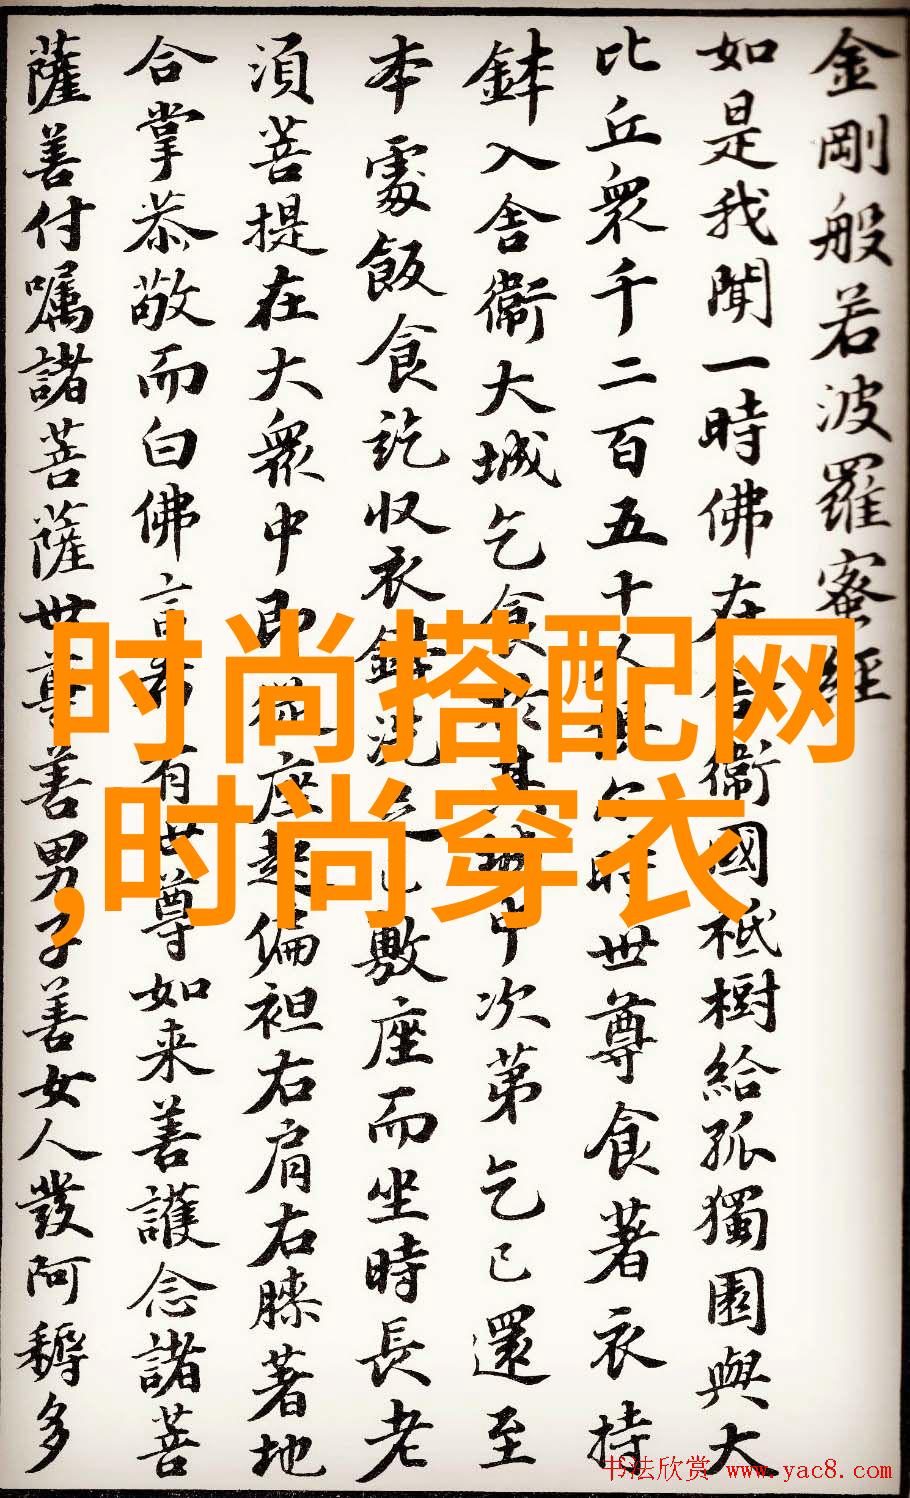 金剛般若波羅蜜經
如是我聞一時佛在舍衞國祇樹給孤獨園與大
比丘衆千二百五十人俱尒時世尊食著衣持
鉢入舍衞大城乞食於其城中次第乞已還至
本處飯食訖収衣鉢洗足已敷座而坐時長老
須菩提在大衆中即從座起偏袒右肩右膝著地
合掌恭敬而白佛言希有世尊如来善護念諸菩
薩善付囑諸菩薩世尊善男子善女人發阿耨多
时尚搭配网
,时尚穿衣
书法欣赏 www.yac8.com